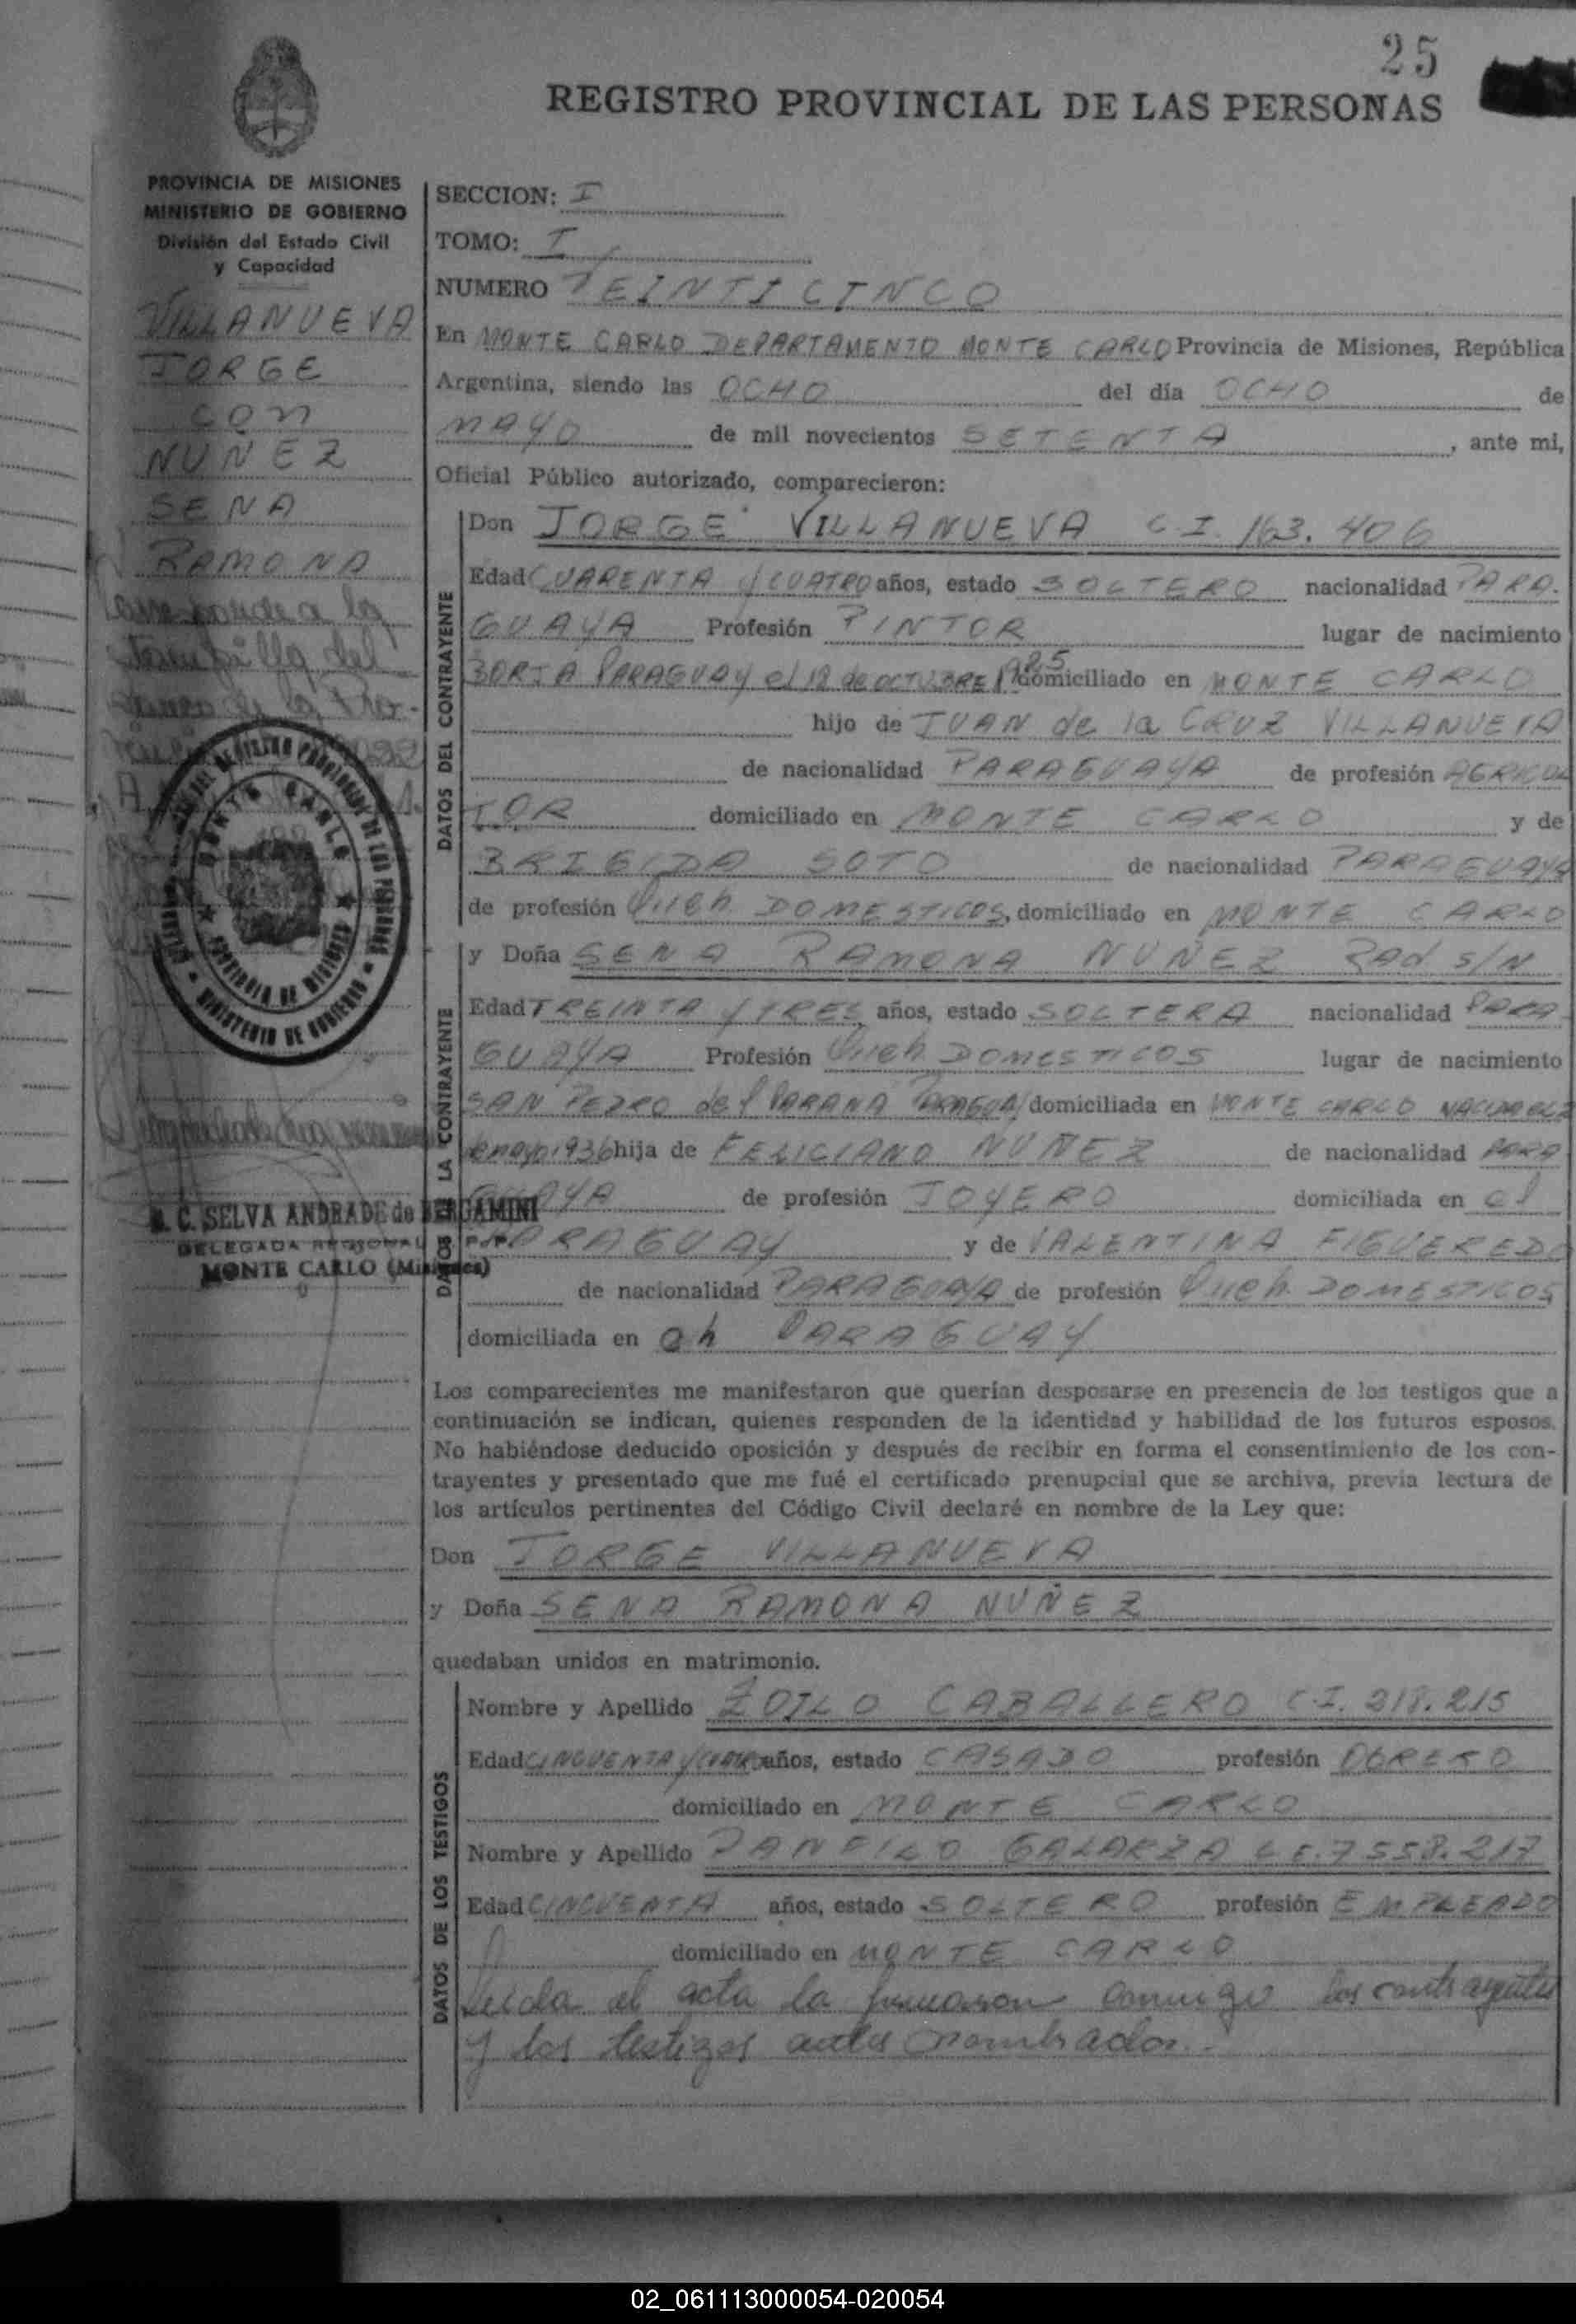 25
REGISTRO PROVINCIAL DE LAS PERSONAS
PROVINCIA DE MISIONES
MINISTERIO DE GOBIERNO
División del Estado Civil
y Capacidad
VILLANUEVA
JORGE
con
NUNEZ
SENA
RAMONA
corresponde a la
estampilla del
MONTE CARLO
PROVINCIA DE MISIONES
MINISTERIO DE GOBIERNO
S. C. SELVA ANDRADE de BERGAMINI
DELEGADA REGIONAL R.P.P.
MONTE CARLO (Misiones)
SECCION: I
TOMO: I
NUMERO VEINTICINCO
En MONTE CARLO DEPARTAMENTO MONTE CARLO Provincia de Misiones, República
Argentina, siendo las OCHO del día OCHO de
MAYO de mil novecientos SETENTA, ante mi,
Oficial Público autorizado, comparecieron:
DATOS DEL CONTRAYENTE
Don JORGE VILLANUEVA C.I. 163.406
Edad CUARENTA Y CUATRO años, estado SOLTERO nacionalidad PARA-
GUAYA Profesión PINTOR lugar de nacimiento
BORJA PARAGUAY el 12 de OCTUBRE 1925 domiciliado en MONTE CARLO
hijo de JUAN de la CRUZ VILLANUEVA
de nacionalidad PARAGUAYA de profesión AGRICUL
TOR domiciliado en MONTE CARLO y de
BRIGIDA SOTO de nacionalidad PARAGUAYA
de profesión Queh. DOMESTICOS, domiciliado en MONTE CARLO
DATOS DE LA CONTRAYENTE
y Doña SENA RAMONA NUÑEZ Rad s/N
Edad TREINTA Y TRES años, estado SOLTERA nacionalidad PARA
GUAYA Profesión Queh DOMESTICOS lugar de nacimiento
SAN PEDRO del PARANA PARAGUAY domiciliada en MONTE CARLO NACIDA EL
de mayo 1936 hija de FELICIANO NUÑEZ de nacionalidad PARA
GUAYA de profesión JOYERO domiciliada en el
PARAGUAY y de VALENTINA FIGUEREDO
de nacionalidad PARAGUAYA de profesión Queh. DOMESTICOS
domiciliada en eh PARAGUAY
Los comparecientes me manifestaron que querían desposarse en presencia de los testigos que a
continuación se indican, quienes responden de la identidad y habilidad de los futuros esposos.
No habiéndose deducido oposición y después de recibir en forma el consentimiento de los con-
trayentes y presentado que me fué el certificado prenupcial que se archiva, previa lectura de
los artículos pertinentes del Código Civil declaré en nombre de la Ley que:
Don JORGE VILLANUEVA
y Doña SENA RAMONA NUÑEZ
quedaban unidos en matrimonio.
DATOS DE LOS TESTIGOS
Nombre y Apellido ZOILO CABALLERO C.I. 218.215
Edad CINCUENTA Y CUATRO años, estado CASADO profesión OBRERO
domiciliado en MONTE CARLO
Nombre y Apellido PANFILO GALARZA L.E. 7.558.217
Edad CINCUENTA años, estado SOLTERO profesión EMPLEADO
domiciliado en MONTE CARLO
Leida el acta la firmaron conmigo los contrayentes
y los testigos antes nombrados.
02_061113000054-020054